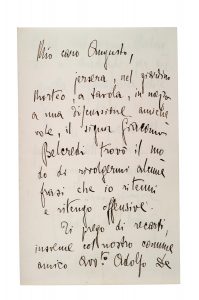 Mio caro Augusto,
persera, nel giardino
Morteo, a tavola, in mezzo
a una discussione amiche
vole, il signor Giacomo
Belcredi trovò il mo
do di rivolgermi alcune
frasi che io ritenni
e ritengo offensive.
Ti prego di recarti,
insieme col nostro comune
amico Avv.to Adolfo Re